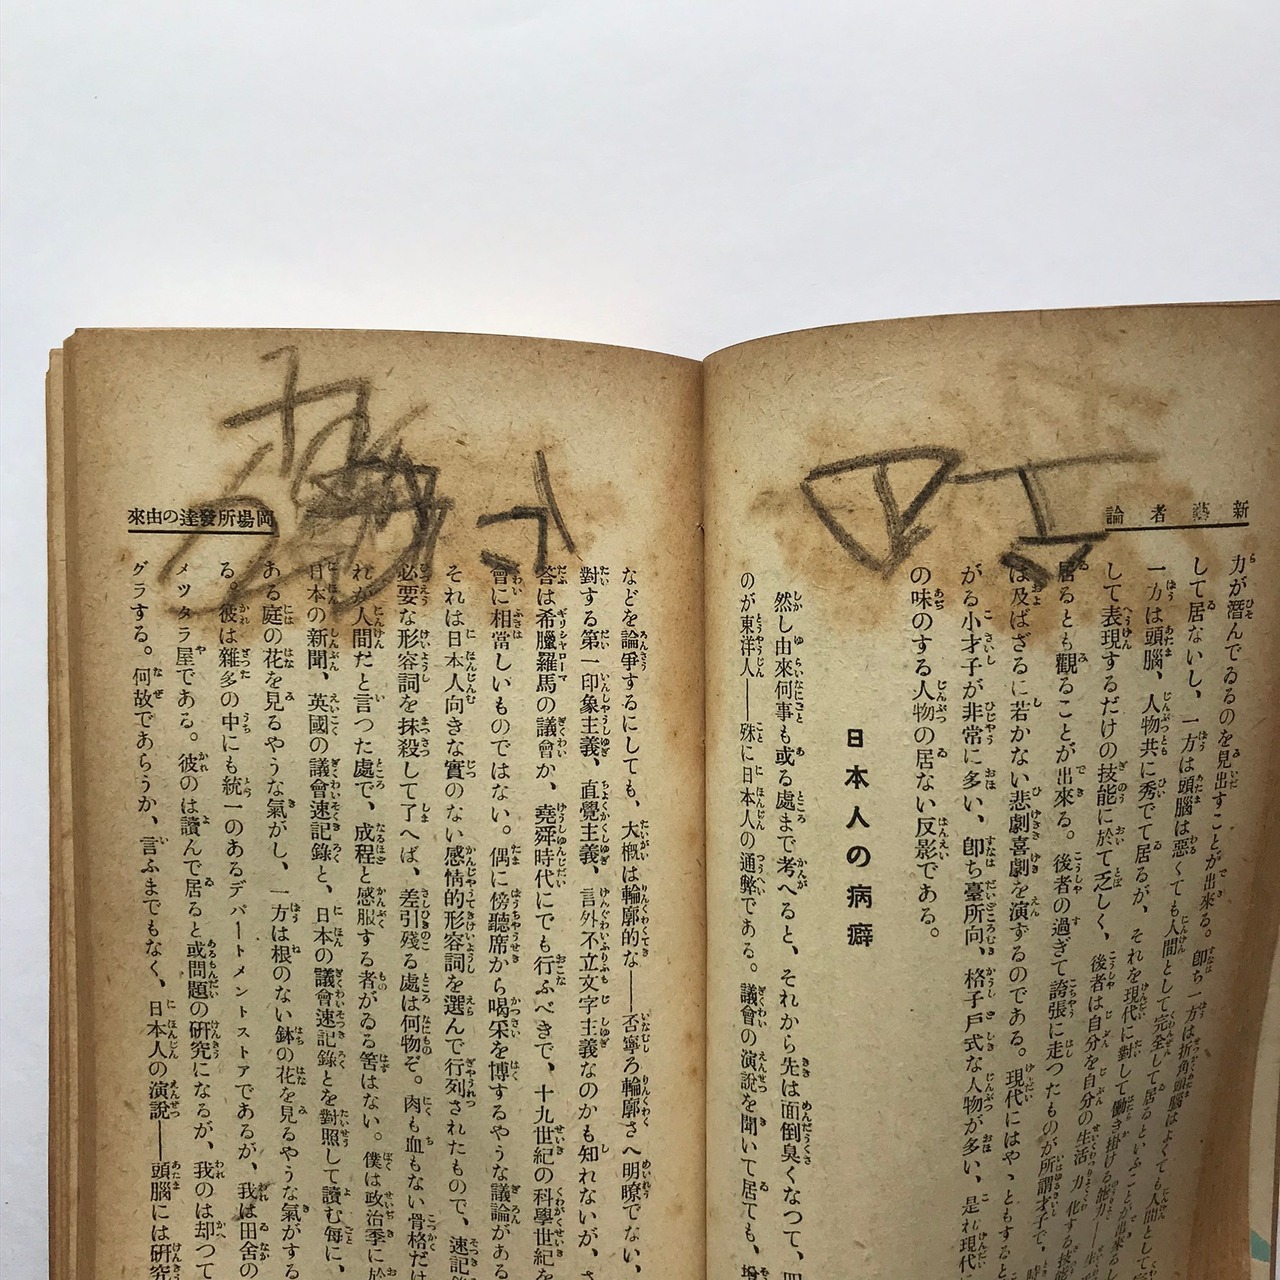 新藝者論
力が潛んでゐるのを見出すことが出來る。卽ち一方は折角頭腦はよくても人間として
して居ないし、一方は頭腦は惡くても人間として完全して居るといふことが出來る
一方は頭腦、人物共に秀でて居るが、それを現代に對して働き掛ける能力
して表現するだけの技能に於て乏しく、後者は自分を自分の生活力化する技
居るとも觀ることが出來る。後者の過ぎて誇張に走つたものが所謂才子で、
は及ばざるに若かない悲劇喜劇を演ずるのである。現代にはやゝともすると
がる小才子が非常に多い、卽ち臺所向、格子戶式な人物が多い、是れ現代
の味のする人物の居ない反影である。
日本人の病癖
然し由來何事も或る處まで考へると、それから先は面倒臭くなつて、
のが東洋人――殊に日本人の通弊である。議會の演說を聞いて居ても、
岡場所發達の由來
などを論爭するにしても、大槪は輪廓的な――否寧ろ輪廓さへ明瞭でない、
對する第一印象主義、直覺主義、言外不立文字主義なのかも知れないが、
答は希臘羅馬の議會か、堯舜時代にでも行ふべきで、十九世紀の科學世紀を
會に相當しいものではない。偶に傍聽席から喝采を博するやうな議論がある
それは日本人向きな實のない感情的形容詞を選んで行列されたもので、速記
必要な形容詞を抹殺して了へば、差引殘る處は何物ぞ。肉も血もない骨格だけ
れが人間だと言つた處で、成程と感服する者がゐる筈はない。僕は政治季に於
日本の新聞、英國の議會速記錄と、日本の議會速記錄とを對照して讀む每に、
ある庭の花を見るやうな氣がし、一方は根のない鉢の花を見るやうな氣がする
る。彼は雜多の中にも統一のあるデパートメントストアであるが、我は田舍の
メツタラ屋である。彼のは讀んで居ると或問題の硏究になるが、我のは却つて
グラする。何故であらうか、言ふまでもなく、日本人の演說――頭腦には硏究